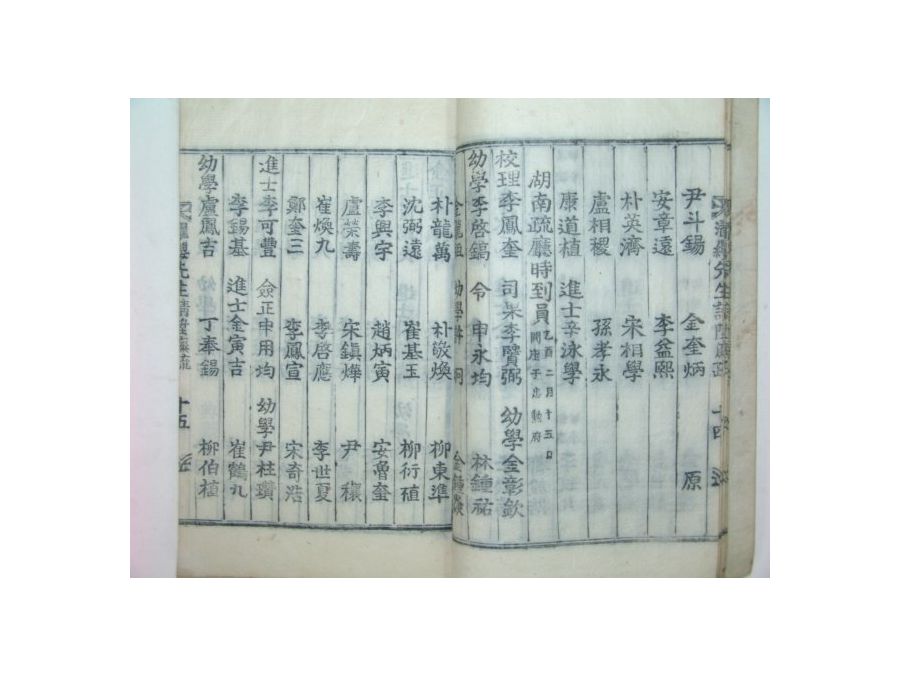 尹斗錫 金奎炳 原
安章遠 李益熙
朴英濟 宋相學
盧相稷 孫孝永
康道植 進士辛泳學
湖南疏廳時到員 乙酉二月十五日
校理李鳳奎 司果李賢弼 幼學金彰歙
幼學李啓鎬 令申永均 林鍾祐
朴龍萬 朴敬煥 柳東準
沈弼遠 崔基玉 柳衍植
李興宇 趙炳寅 安魯奎
盧榮壽 宋鎭燁 尹穰
崔煥九 李啓應 李世夏
鄭奎三 李鳳宣 宋奇浩
進士李可豐 僉正申用均 幼學尹柱瓚
李錫基 進士金寅吉 崔鶴九
幼學盧鳳吉 丁奉錫 柳伯植
先生請陞廡疏 十五